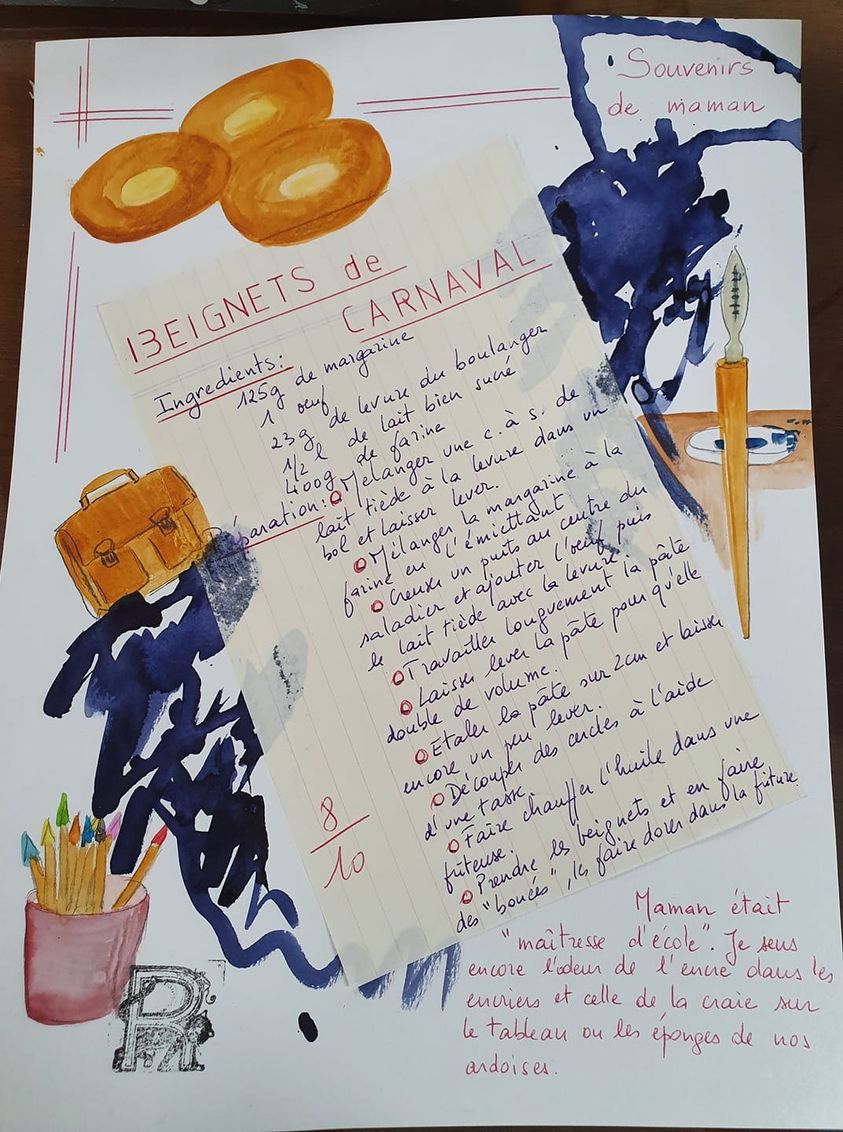 Souvenirs
de maman
BEIGNETS de
CARNAVAL
Ingredients:
125g de margarine
1 oeuf
23g de levure du boulanger
1/2 l de lait bien sucré
400g de farine
Préparation: Mélanger une c. à s. de
lait tiède à la levure dans un
bol et laisser lever.
Mélanger la margarine à la
farine en l'émiettant
Creuser un puits au centre du
saladier et ajouter l'oeuf puis
le lait tiède avec la levure.
Travailler longuement la pâte
Laisser lever la pâte pour qu'elle
double de volume.
Etaler la pâte sur 2cm et laisser
encore un peu lever.
Découper des cercles à l'aide
d'une tasse.
Faire chauffer l'huile dans une
friteuse.
Prendre les beignets et en faire
des "bouées", les faire dorer dans la friture.
8
10
Maman était
"maîtresse d'école". Je sens
encore l'odeur de l'encre dans les
encriers et celle de la craie sur
le tableau ou les éponges de nos
ardoises.
R